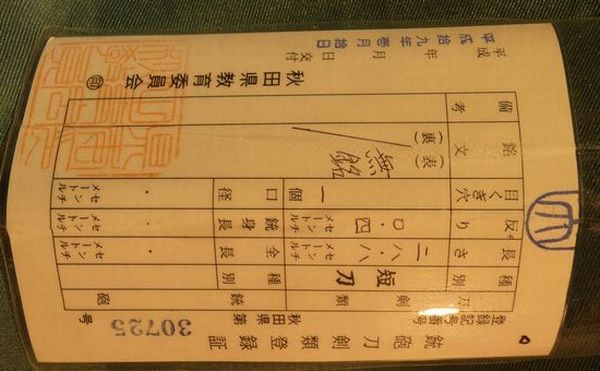 銃砲刀剣類登録証
登録記号番号 秋田県 第 30725 号
刀剣類
銃砲
種別 短刀
種別
長さ 二八・八 センチメートル
全長 ・ センチメートル
反り 〇・四 センチメートル
銃身長 ・ センチメートル
目くぎ穴 一個
口径 ・ センチメートル
銘文 (表) 無銘
(裏)
備考
平成 年 月 日交付
平成拾九年壱月拾日
秋田県教育委員会 印